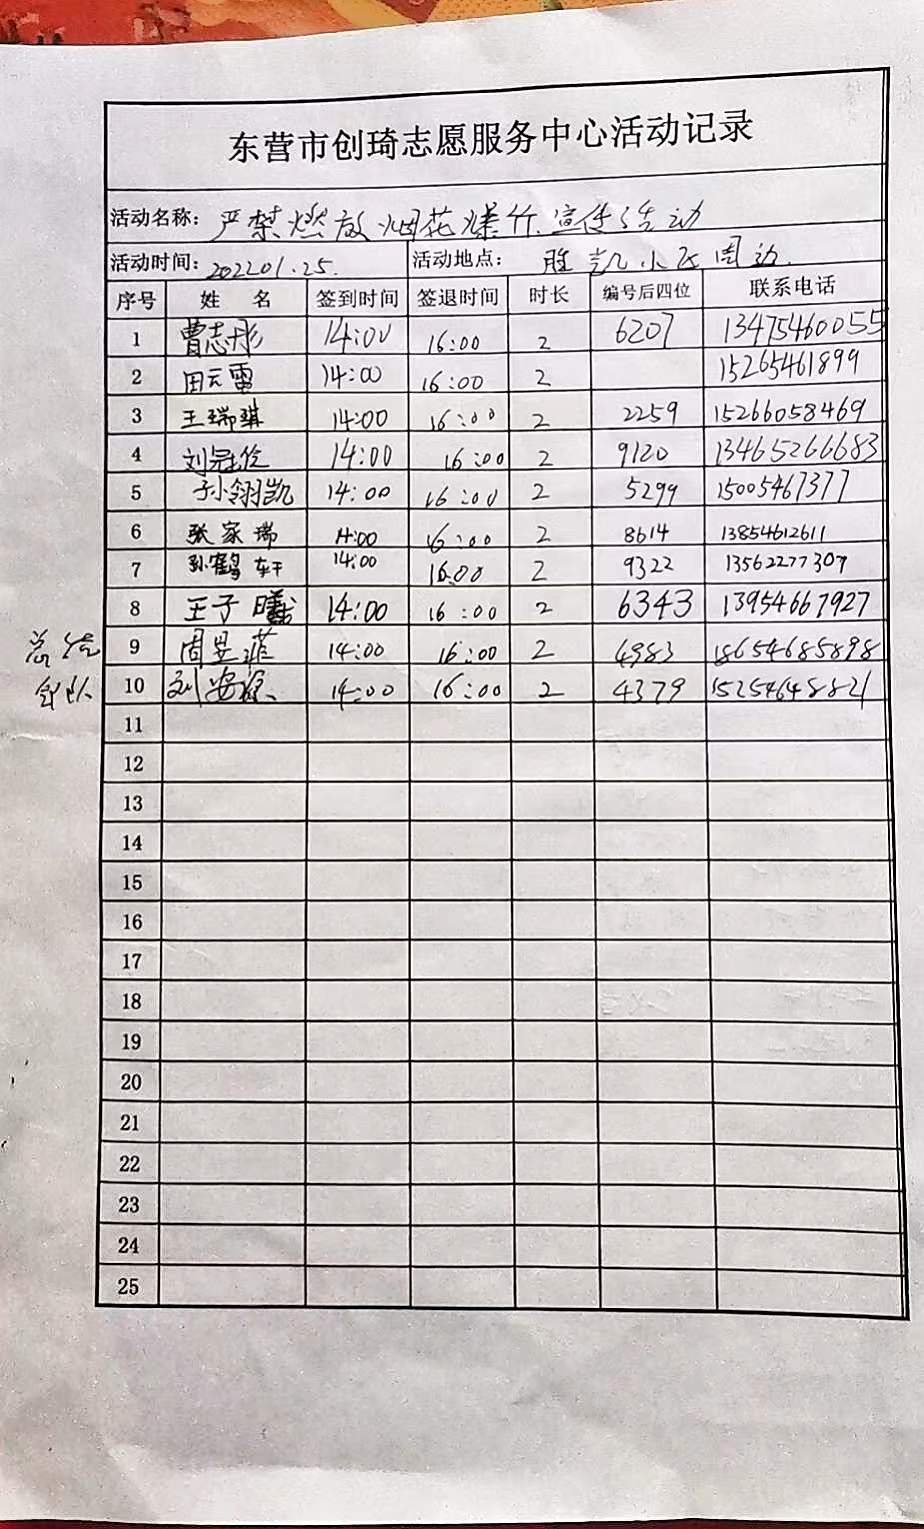 东营市创琦志愿服务中心活动记录
活动名称: 严禁燃放烟花爆竹宣传活动
活动时间: 202201.25. 活动地点: 胜凯小区周边
序号 姓名 签到时间 签退时间 时长 编号后四位 联系电话
1 曹志彤 14:00 16:00 2 6207 13475460055
2 田云雷 14:00 16:00 2 15265461899
3 王瑞琪 14:00 16:00 2 2259 15266058469
4 刘冠佗 14:00 16:00 2 9120 13465266683
5 孙翎凯 14:00 16:00 2 5299 15005467377
6 张家瑞 14:00 16:00 2 8614 13854612611
7 孙鹤轩 14:00 16:00 2 9322 13562277307
8 王子曦 14:00 16:00 2 6343 13954667927
9 周昱菲 14:00 16:00 2 4983 18654685898
10 刘安 14:00 16:00 2 4379 15254648821
11
12
13
14
15
16
17
18
19
20
21
22
23
24
25